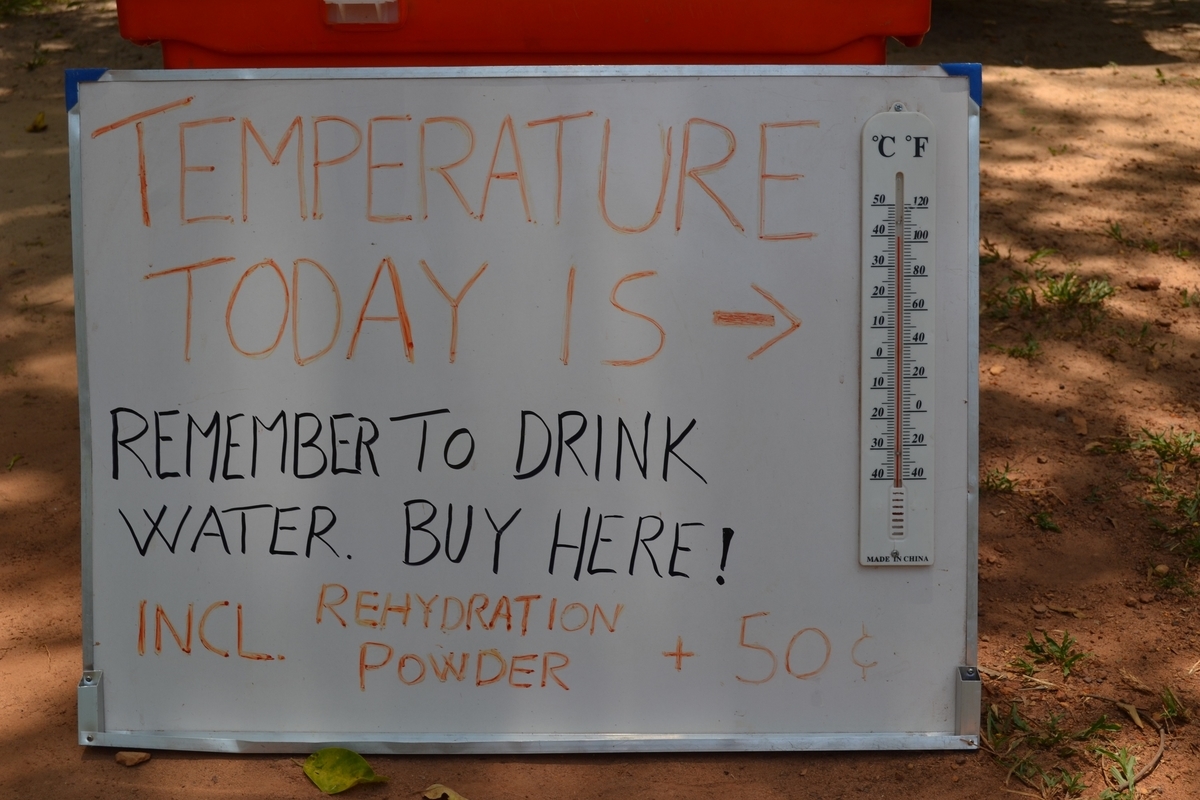 TEMPERATURE
TODAY IS →
REMEMBER TO DRINK
WATER. BUY HERE!
INCL. REHYDRATION
POWDER + 50¢
°C °F
50 120
40 100
30 80
20 60
10 40
0 20
10 0
20 20
30 40
40
MADE IN CHINA